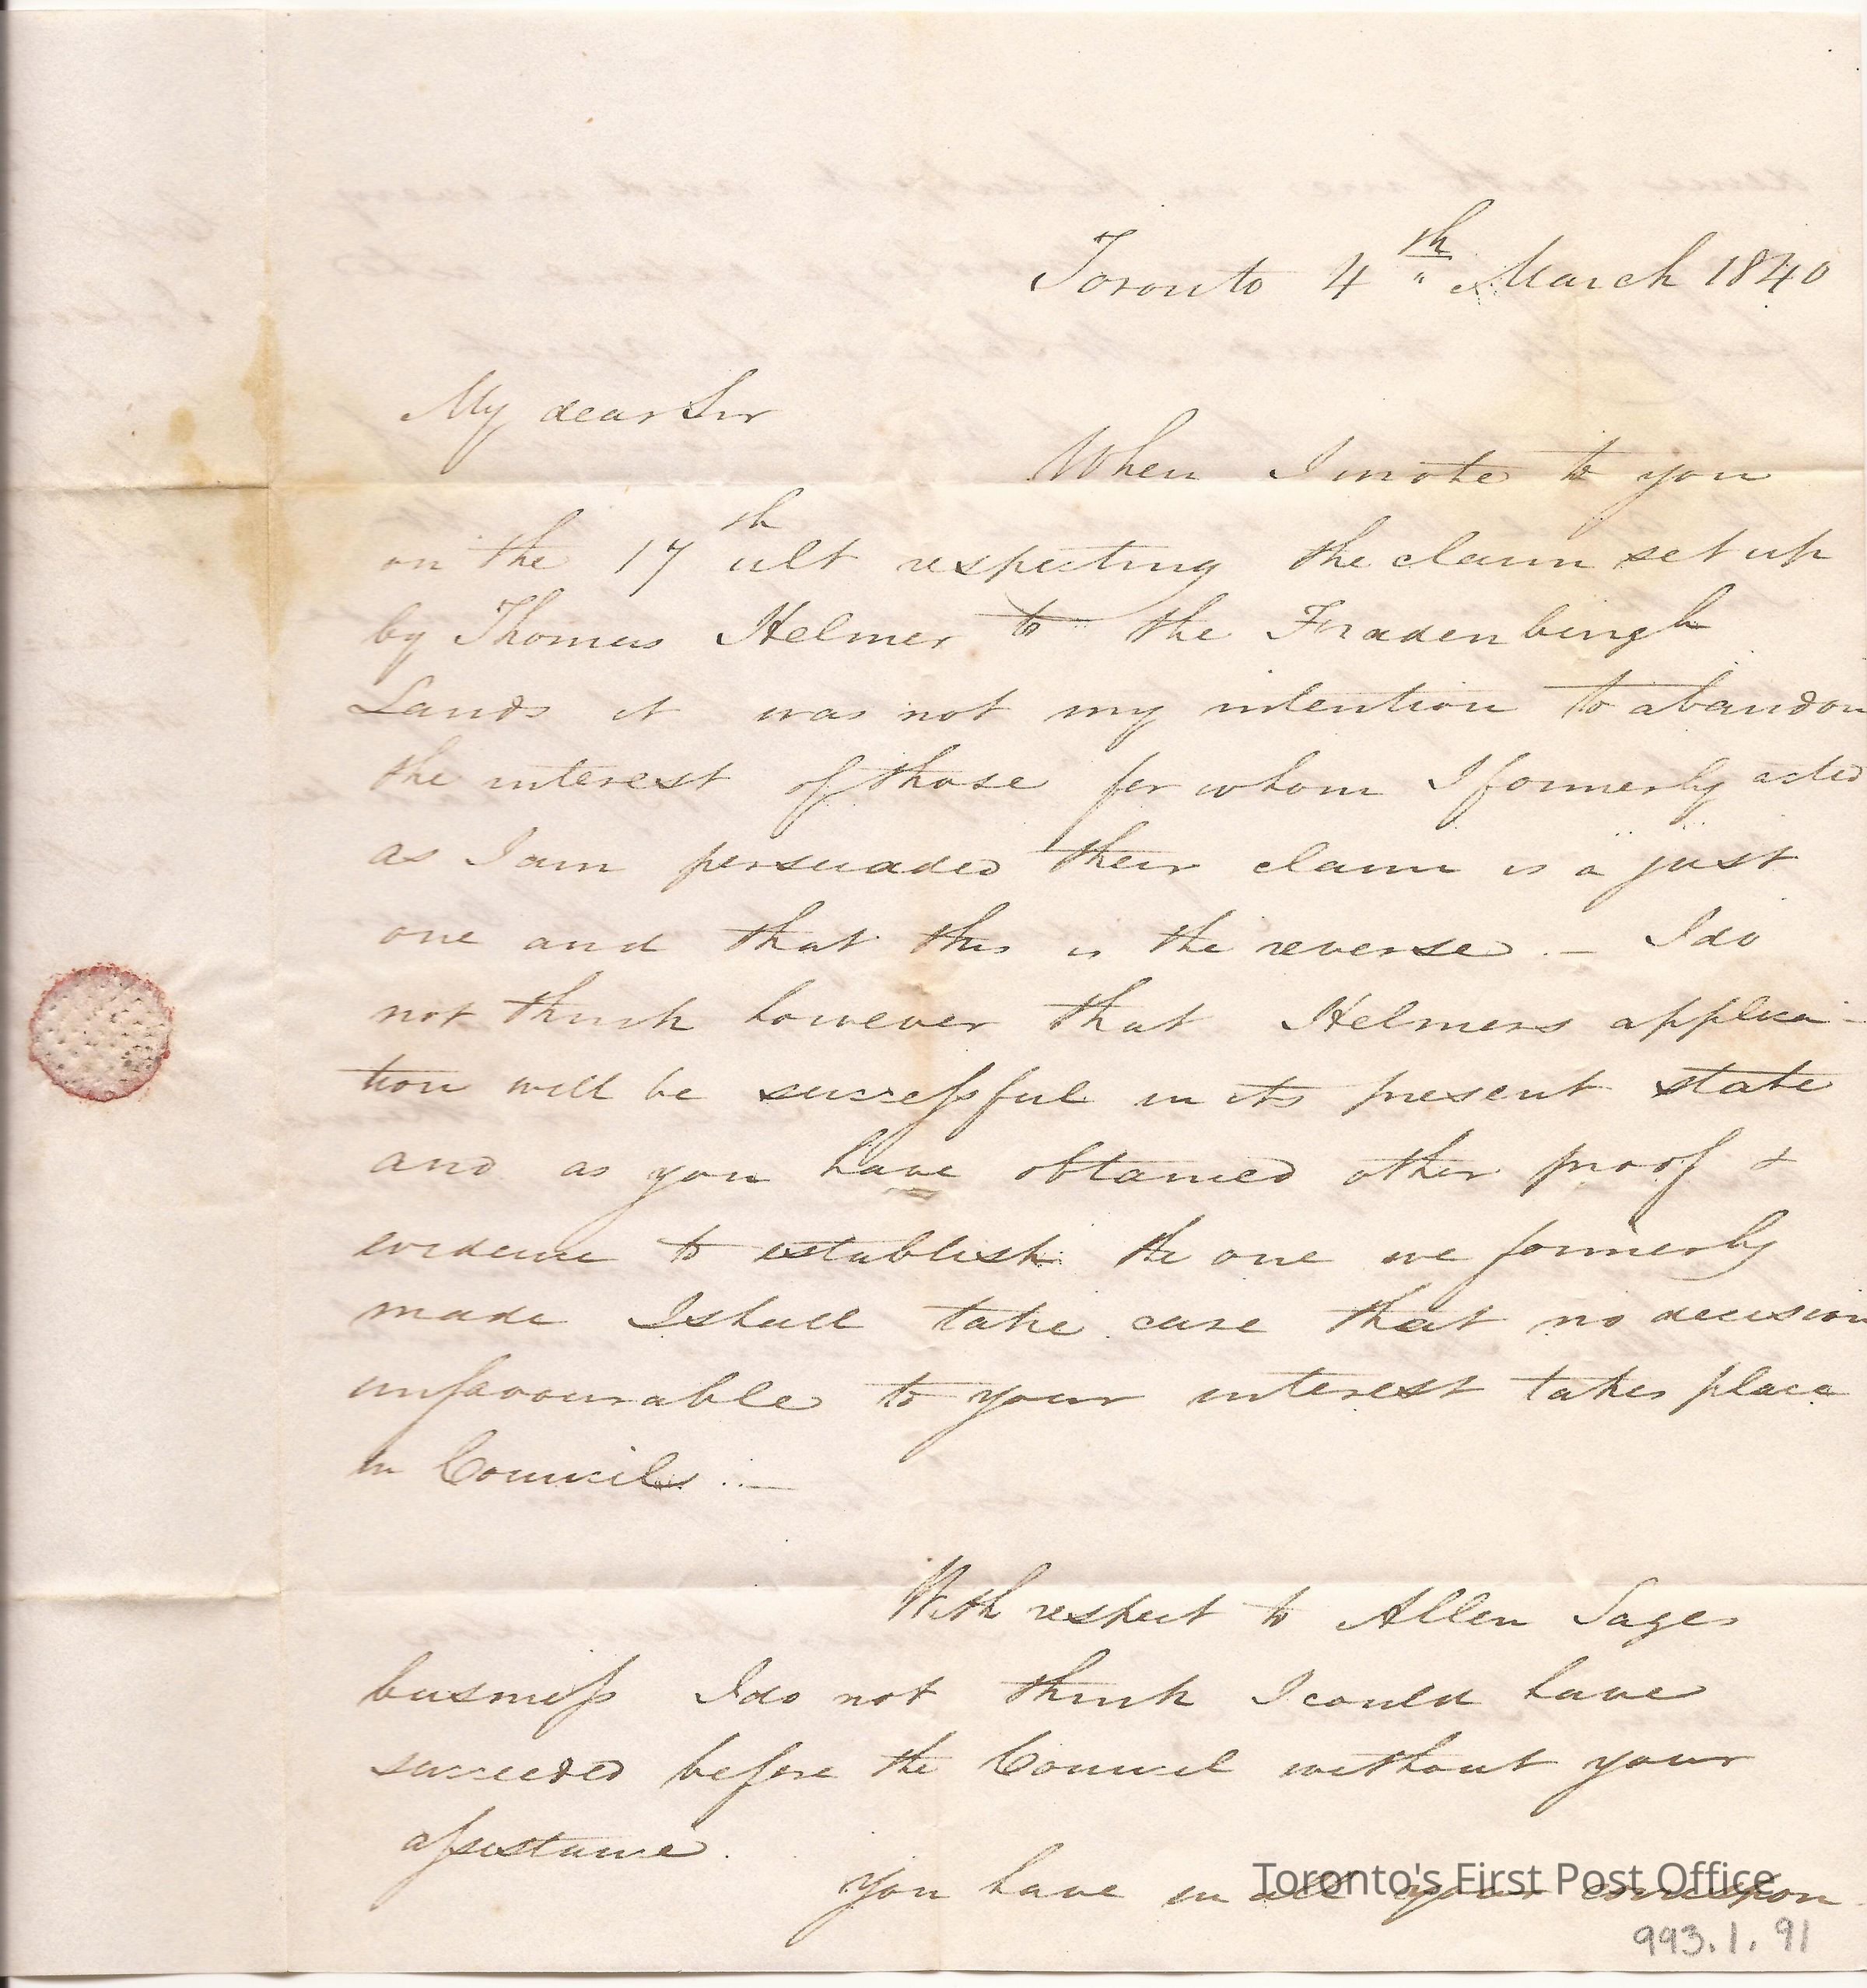 Toronto 4th March 1840
My dear Sir
When I wrote to you
on the 17th ult respecting the claim set up
by Thomas Helmer to the
Lands it was not my intention to abandon
the interest of those for whom I formerly acted
as I am persuaded their claim is a just
one and that this is the reverse. — I do
not think however that Helmers applica-
tion will be successful in its present state
and as you have obtained other proof &
evidence to establish the one we formerly
made I shall take care that no decision
unfavourable to your interest takes place
in Council. —
With respect to Allen Sages
business I do not think I could have
succeeded before the Council without your
assistance.
You have in all your correspon-
Toronto's First Post Office
993.1.91